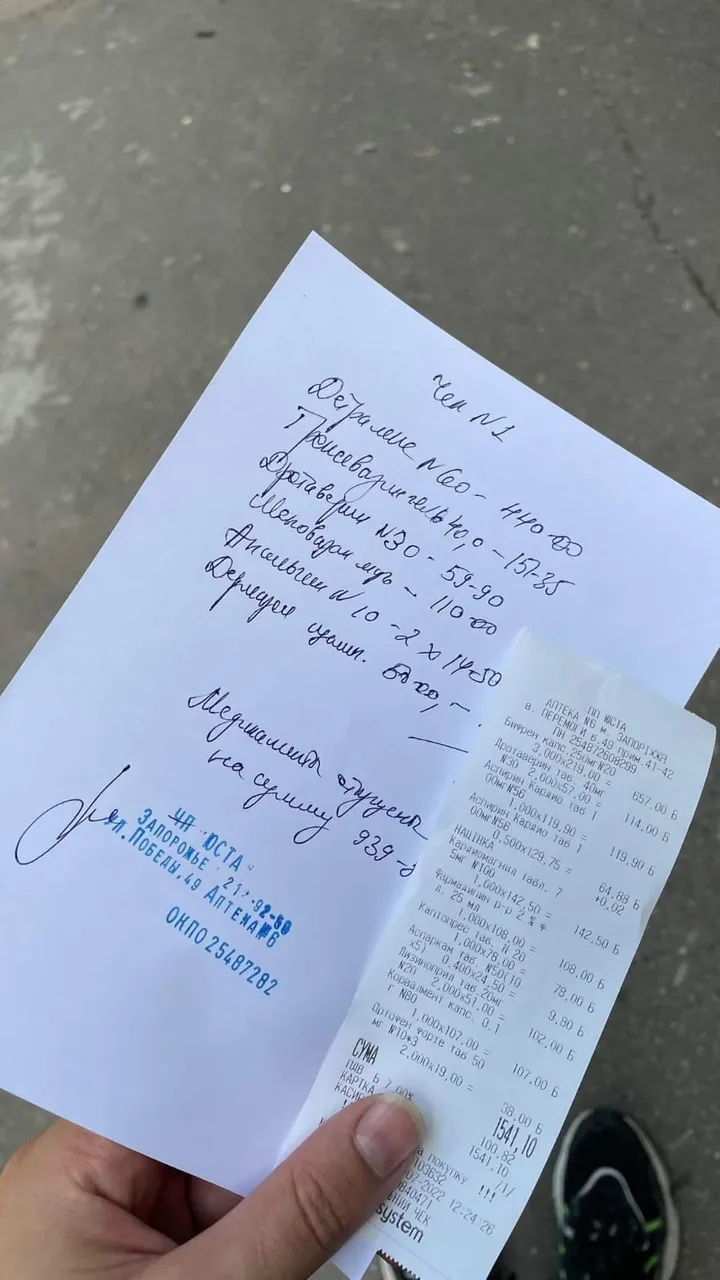 Чек N1
Детралекс N60 - 440-00
Троксевазугель 40,0 - 151-35
Дротаверин N30 - 59-90
Меновазин мазь - 110-00
Анальгин N10 - 2 x 14-50
50,0
Медикаменты отпущены
на сумму 939-
ЧП ЮСТА
ЗАПОРОЖЬЕ
УЛ. ПОБЕДЫ, 49 АПТЕКА №6
ОКПО 25487282
ПП ЮСТА
АПТЕКА №6 м. ЗАПОРІЖЖЯ
в. ПЕРЕМОГИ б.49 прим.41-42
ПН 254872608299
Бифрен капс.250мг№20
3,000x219,00 = 657.00 Б
Дротаверин таб. 40мг
№30 2,000x57,00 = 114.00 Б
Аспирин Кардио таб 1
00мг№56
1,000x119,90 = 119,90 Б
Аспирин Кардио таб 1
00мг№56
0,500x129,75 = 64,88 Б
НАЦІНКА +0,02
Кардиомагнил табл. 7
5мг №100
1,000x142,50 = 142,50 Б
р-р 2 % ф
л. 25 мл
1,000x108,00 = 108,00 Б
Каптопрес таб. N 20
1,000x78,00 = 78,00 Б
Аспаркам таб. №50(10
x5) 0,400x24,50 = 9,80 Б
Лизиноприл таб 20мг
N20 2,000x51,00 = 102,00 Б
Корвалмент капс. 0.1
г N80
1,000x107,00 = 107,00 Б
Ортофен форте таб 50
мг №10*3
2,000x19,00 = 38,00 Б
СУМА 1541,10
ПДВ Б 7,00% 100,82
КАРТКА 1541,10
КАСИР /1/
а покупку !!!
103632
07-2022 12:24:26
0840471
ЬНИЙ ЧЕК
system